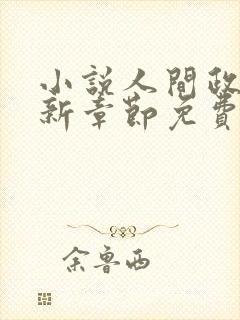 小說人間政
新章節免費
余魯西